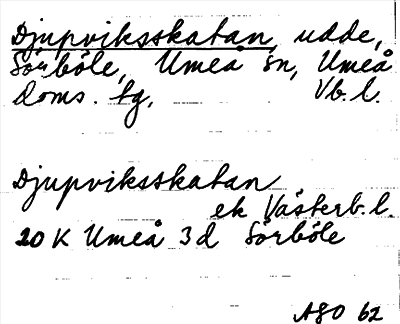 Djupviksskatan, udde,
Sörböle, Umeå sn, Umeå
Doms. fg, Vb. l.
Djupviksskatan
ek Västerb. l.
20 K Umeå 3d Sörböle
ASO 62